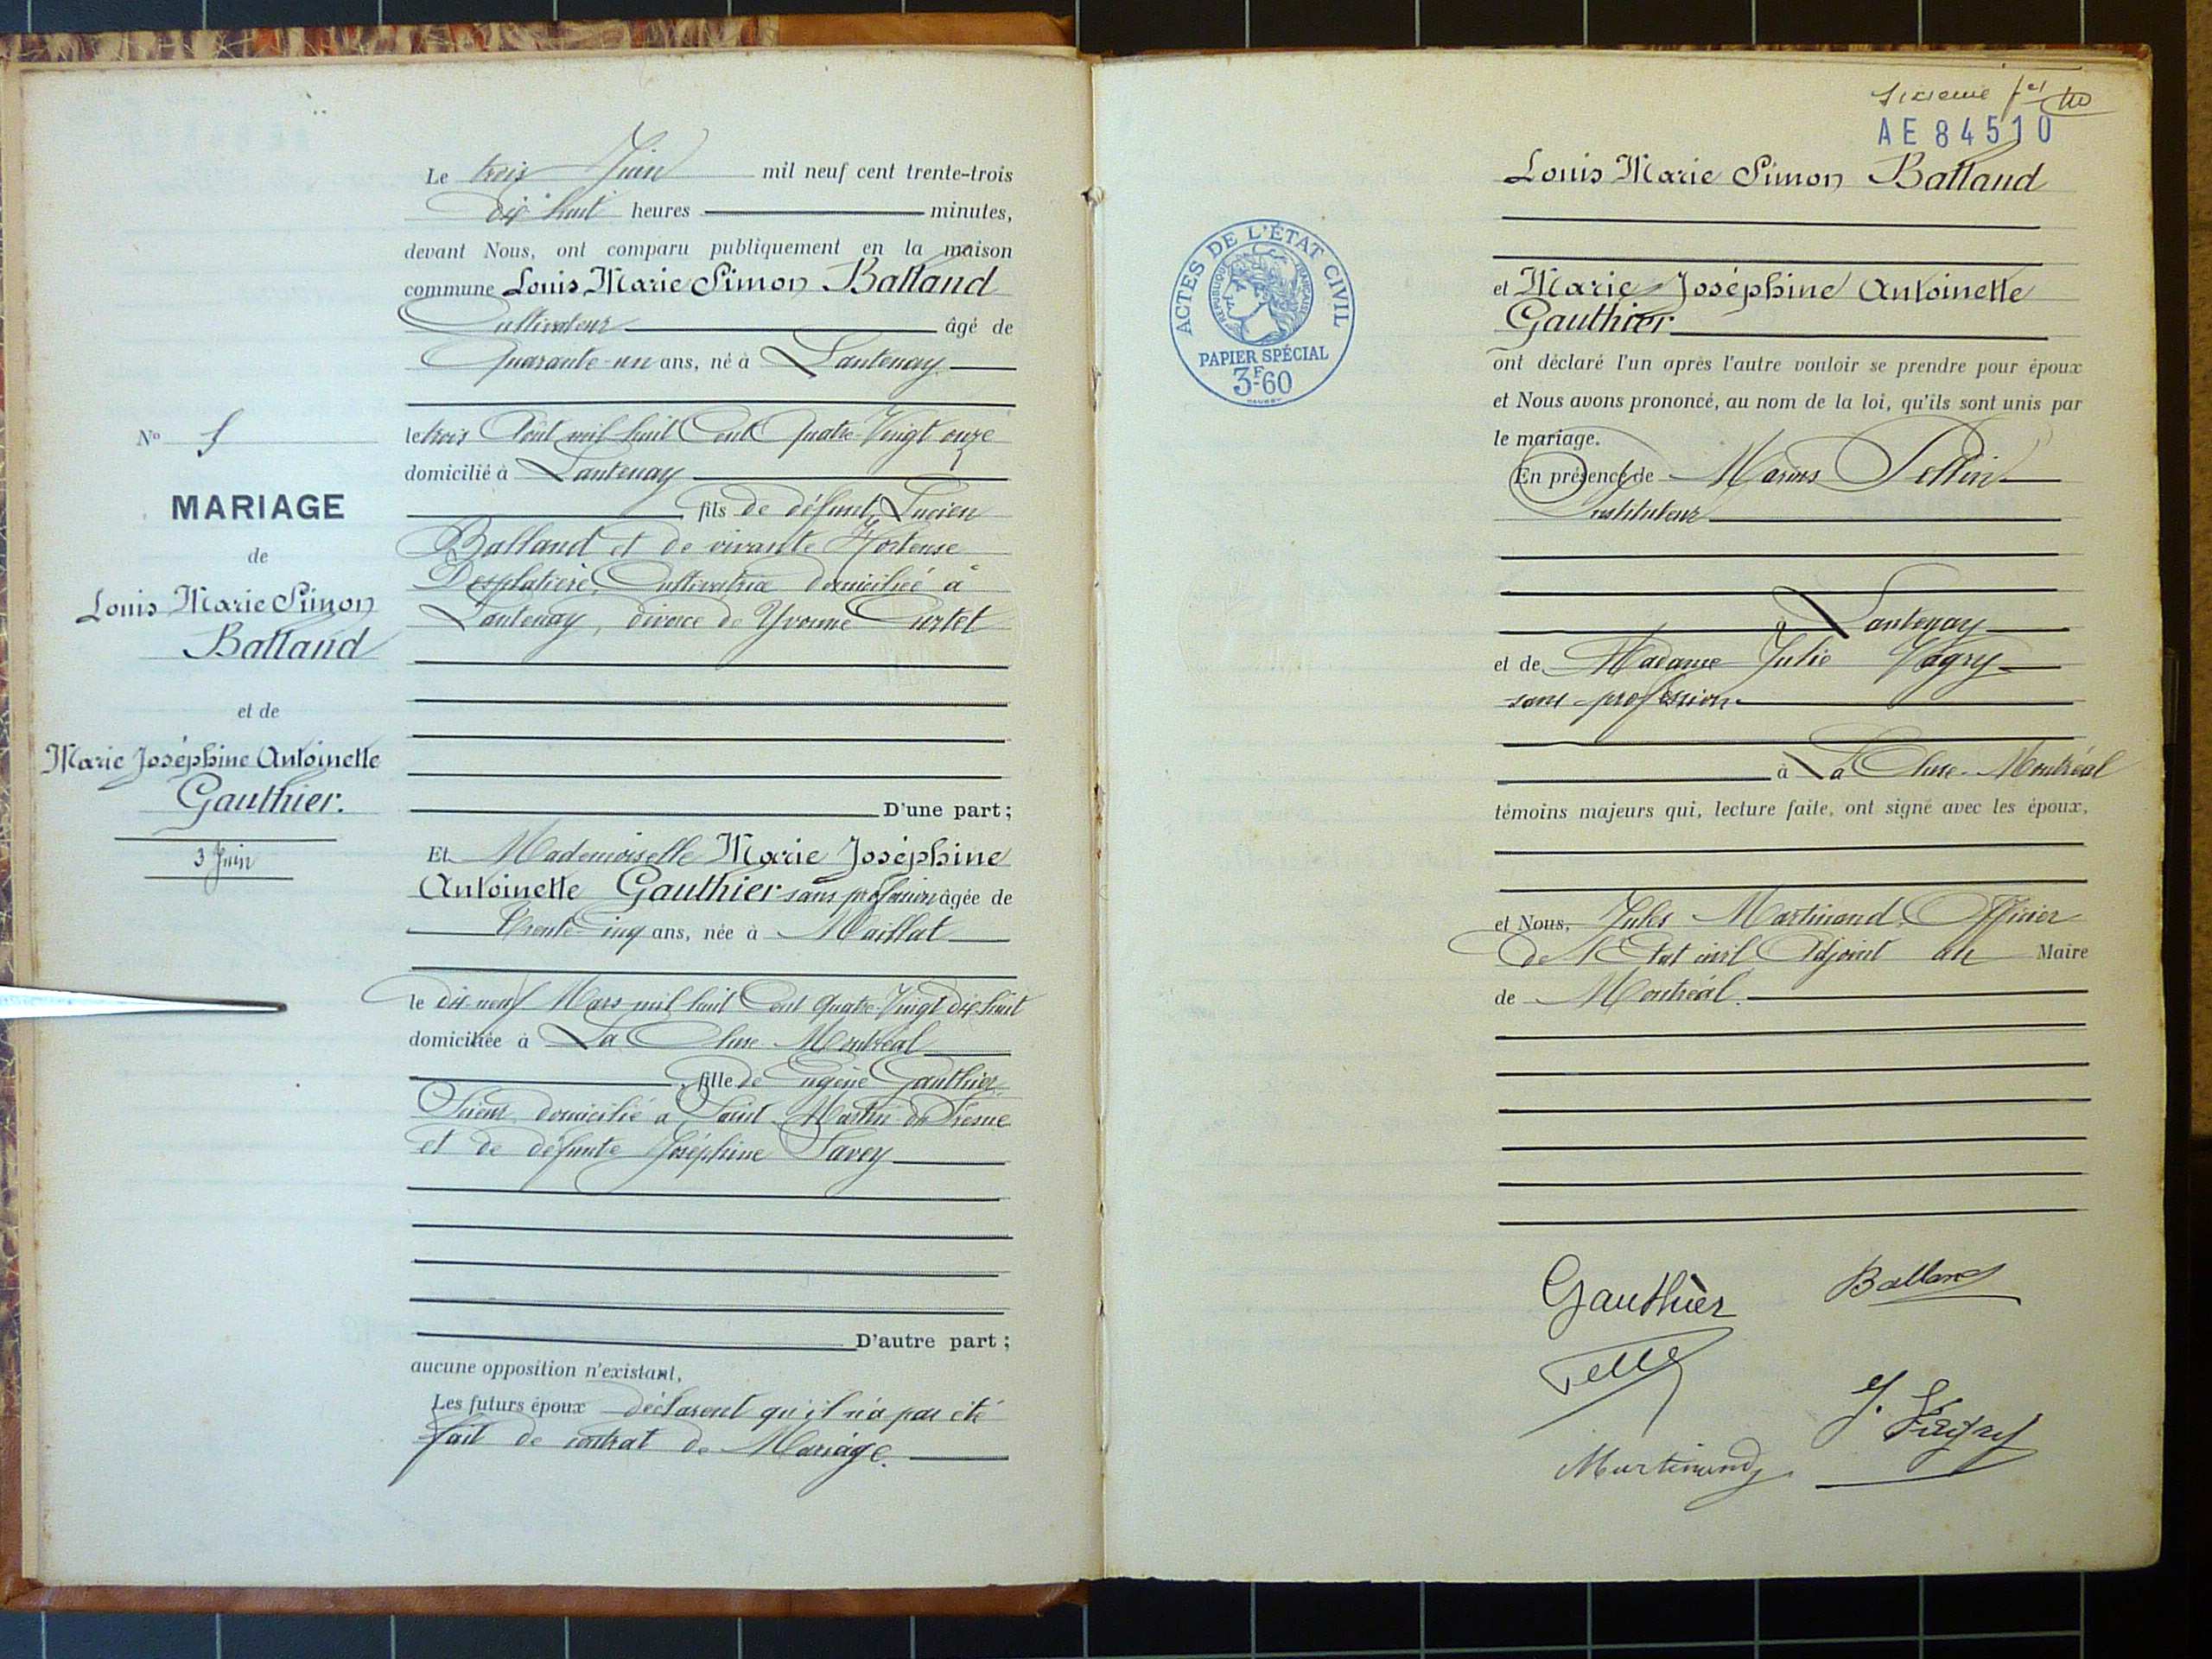 Le trois Juin mil neuf cent trente-trois
dix huit heures minutes,
devant Nous, ont comparu publiquement en la maison
commune Louis Marie Simon Balland
Cultivateur âgé de
Quarante-un ans, né à Lantenay
le trois Août mil huit Cent Quatre-Vingt onze
domicilié à Lantenay
fils de défunt Lucien
Balland et de vivante Hortense
Desplatière, Cultivatrice domiciliée à
Lantenay, divorcé de Yvonne Curtet
D'une part ;
Et Mademoiselle Marie Joséphine
Antoinette Gauthier sans profession âgée de
trente-cinq ans, née à Maillat
le dix-neuf Mars mil huit Cent quatre-Vingt dix-huit
domiciliée à La Cluse-Montréal
fille de Eugène Gauthier
Scieur domicilié à Saint-Martin-du-Fresne
et de défunte Joséphine Savey
D'autre part ;
aucune opposition n'existant,
Les futurs époux déclarent qu'il n'a pas été
fait de contrat de Mariage.
No 5
MARIAGE
de
Louis Marie Simon
Balland
et de
Marie Joséphine Antoinette
Gauthier.
3 Juin
sixième fet
AE 84510
Louis Marie Simon Balland
et Marie Joséphine Antoinette
Gauthier
ont déclaré l'un après l'autre vouloir se prendre pour époux
et Nous avons prononcé, au nom de la loi, qu'ils sont unis par
le mariage.
En présence de Marius
Instituteur
à Lantenay
et de Madame Julie Vagry
sans profession
à La Cluse-Montréal
témoins majeurs qui, lecture faite, ont signé avec les époux,
et Nous, Jules Martinand, Officier
de l'Etat civil Adjoint au Maire
de Montréal.
ACTES DE L'ÉTAT CIVIL
RÉPUBLIQUE FRANÇAISE
PAPIER SPÉCIAL
3F60
Gauthièr Balland
J. Vagry
Martinand